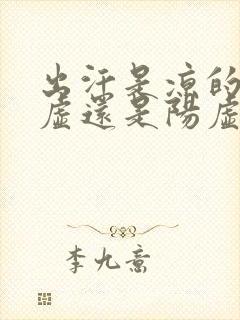 出汗是凉的
虛還是陽虛
李九意